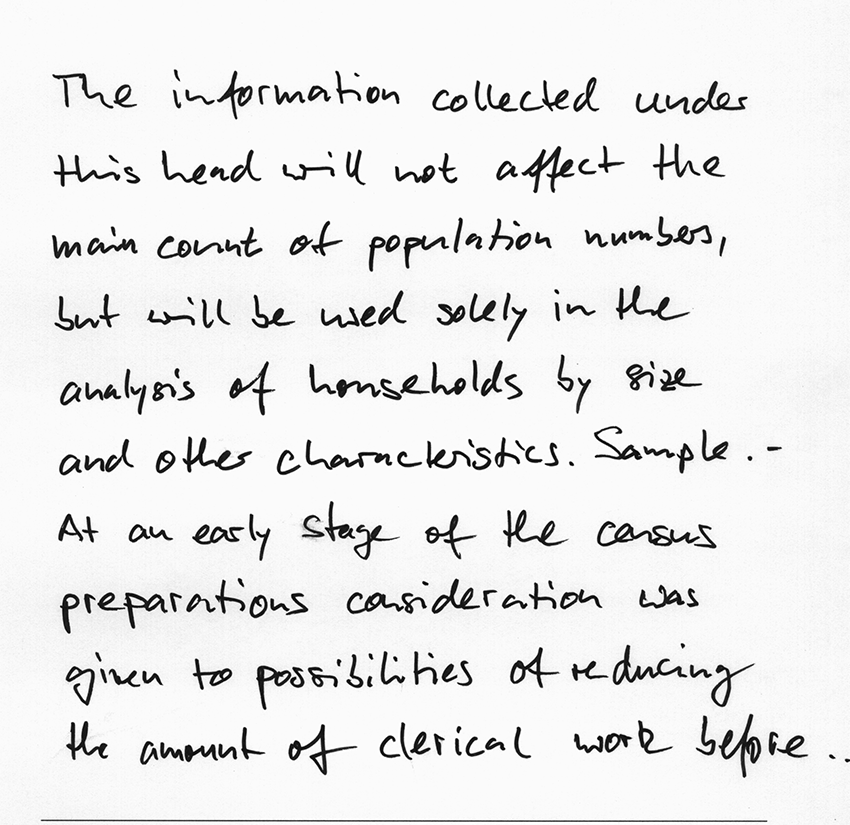 The information collected under
this head will not affect the
main count of population numbers,
but will be used solely in the
analysis of households by size
and other characteristics. Sample. -
At an early stage of the census
preparations consideration was
given to possibilities of reducing
the amount of clerical work before ..